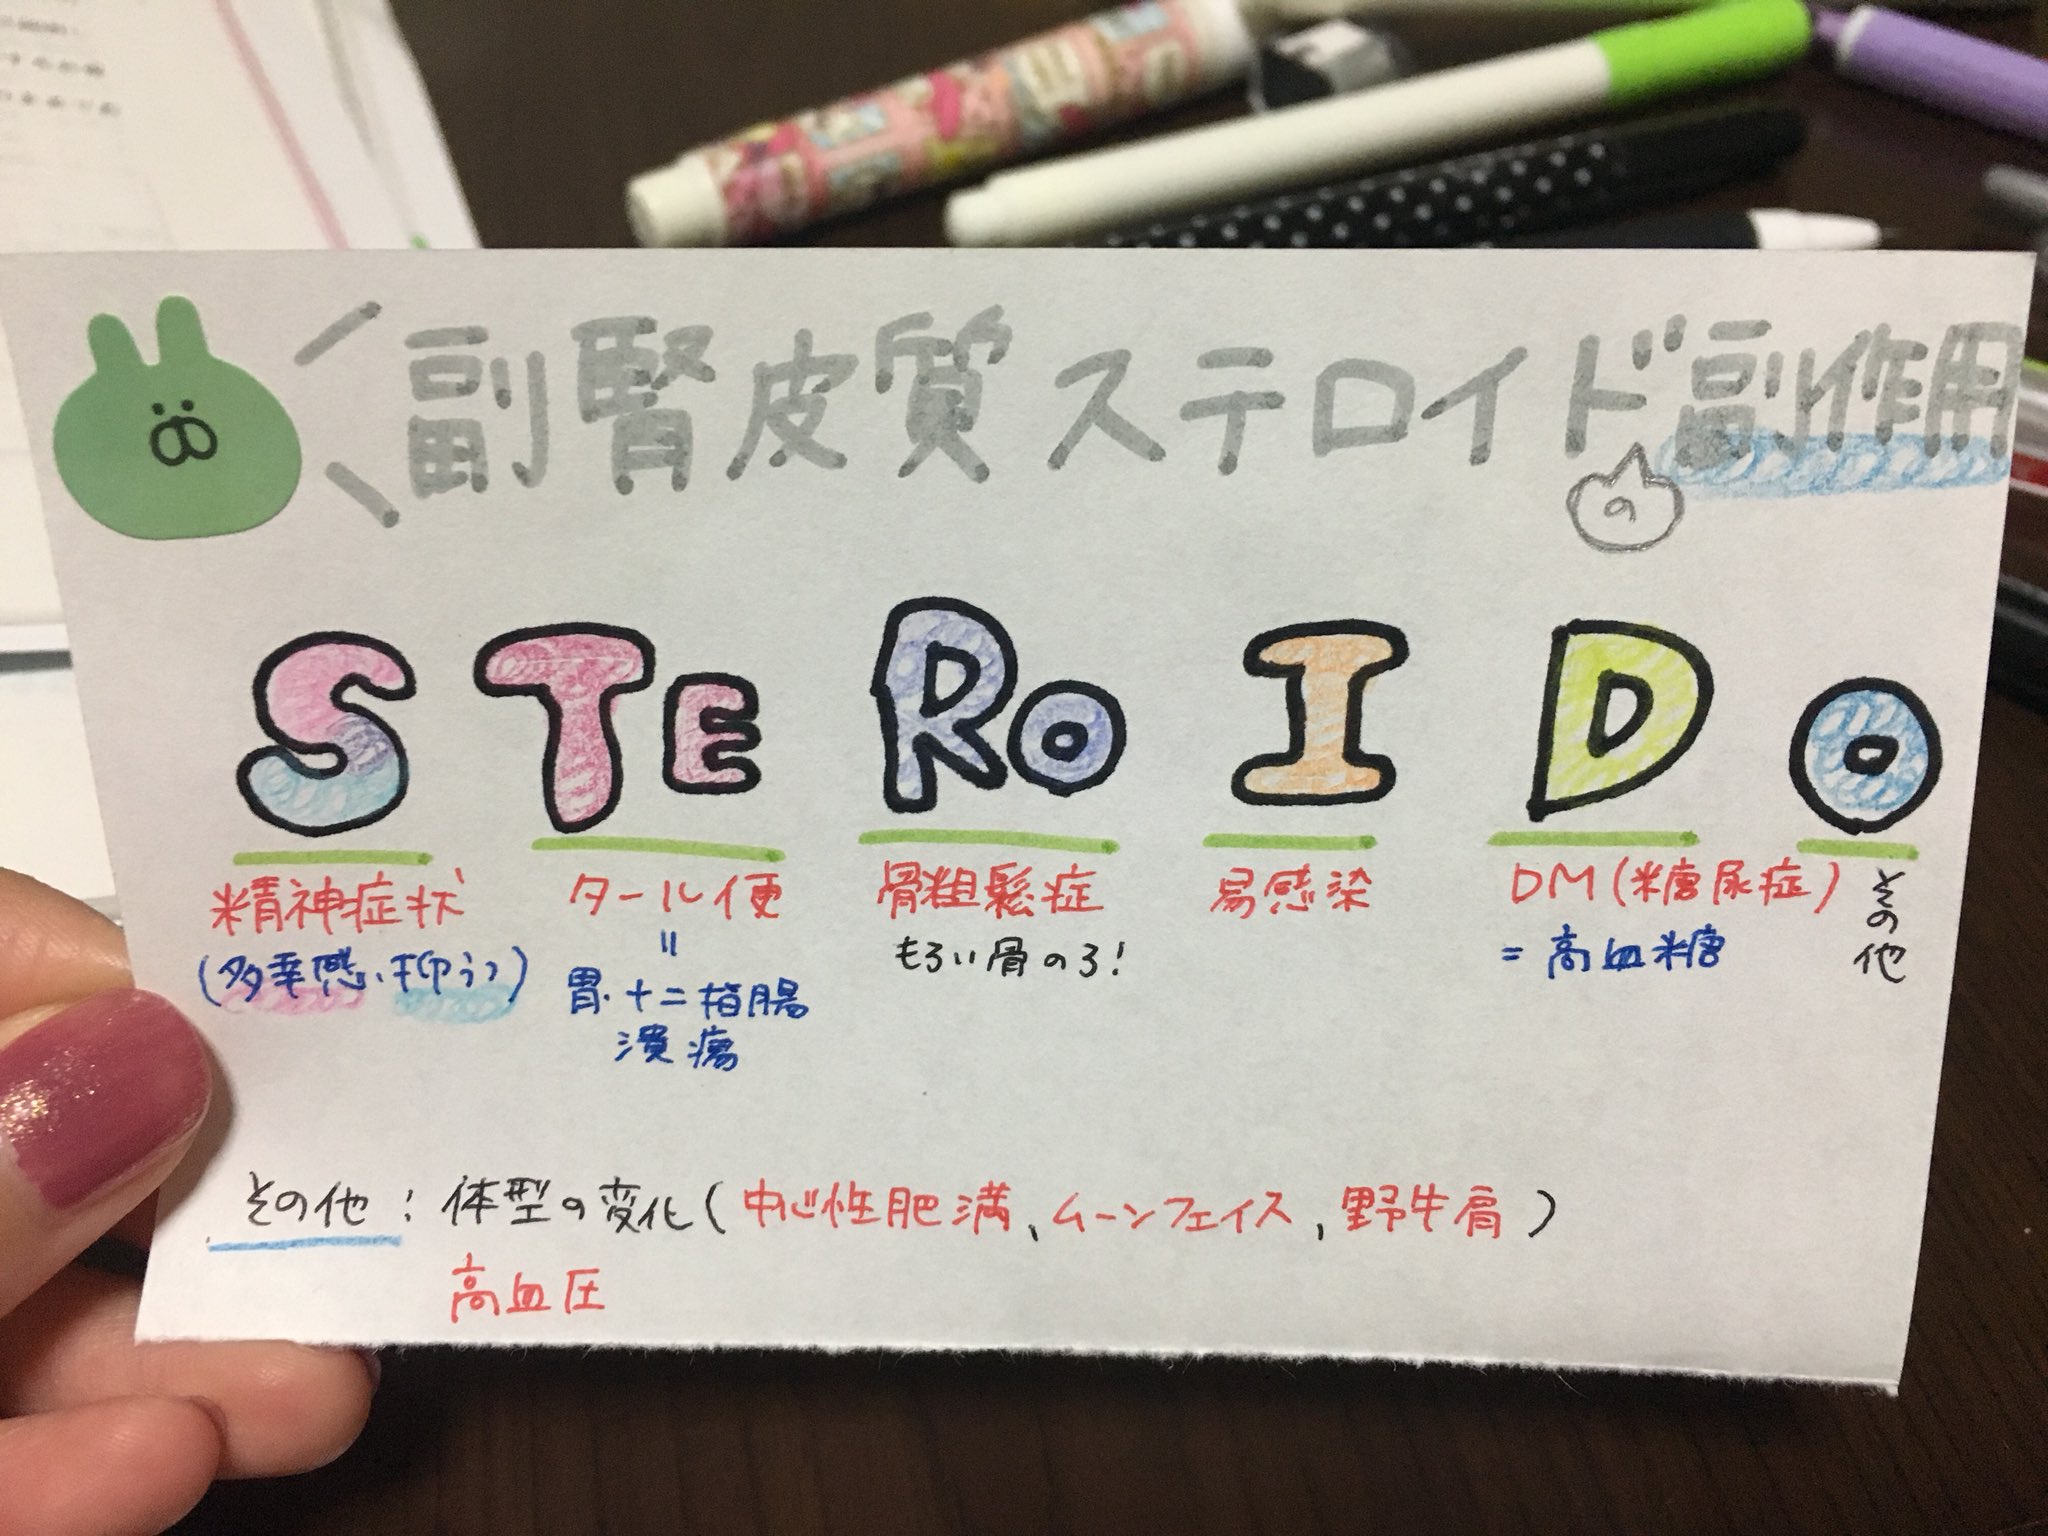 副腎皮質ステロイド副作用
の
STEROIDO
精神症状 タール便 骨粗鬆症 易感染 DM(糖尿症) その他
(多幸感、抑うつ) = もろい骨のろ! =高血糖
胃・十二指腸
潰瘍
その他:体型の変化(中心性肥満、ムーンフェイス、野牛肩)
高血圧